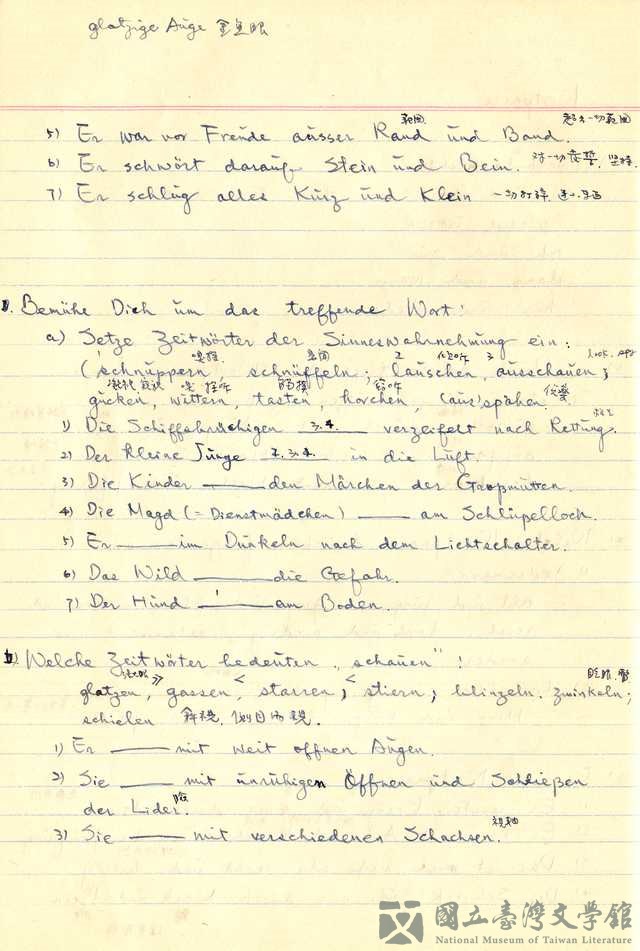 glotzige Auge 金魚眼
範圍 超出一切範圍
5) Er war vor Freude ausser Rand und Band.
6) Er schwört darauf Stein und Bein. 對一切發誓, 堅持.
7) Er schlug alles Kurz und Klein
Bemühe Dich um das treffende Wort!
a) Setze Zeitwörter der Sinneswahrnehmung ein:
(schnüppern, schnüffeln; lauschen, ausschauen;
gucken, wittern, tasten, horchen, (aus)spähen.
1) Die Schiffsbrüchigen 3.4. verzeifelt nach Rettung.
2) Der Kleine Junge 2.3.4. in die Luft.
3) Die Kinder ___ den Märchen der Großmütter.
4) Die Magd (= Dienstmädchen) ___ am Schlüpelloch.
5) Er ___ im Dunkeln nach dem Lichtschalter.
6) Das Wild ___ die Gefahr.
7) Der Hund ___ am Boden.
b) Welche Zeitwörter bedeuten „schauen"!
glotzen, gassen, starren, stieren, blinzeln, zwinkeln;
schielen 斜視,
1) Er ___ mit weit offnen Augen.
2) Sie ___ mit unruhigen Öffnen und Schließen
der Lider. 瞼
3) Sie ___ mit verschiedenen Schachsen. 視軸
國立臺灣文學館
National Museum of Taiwan Literature